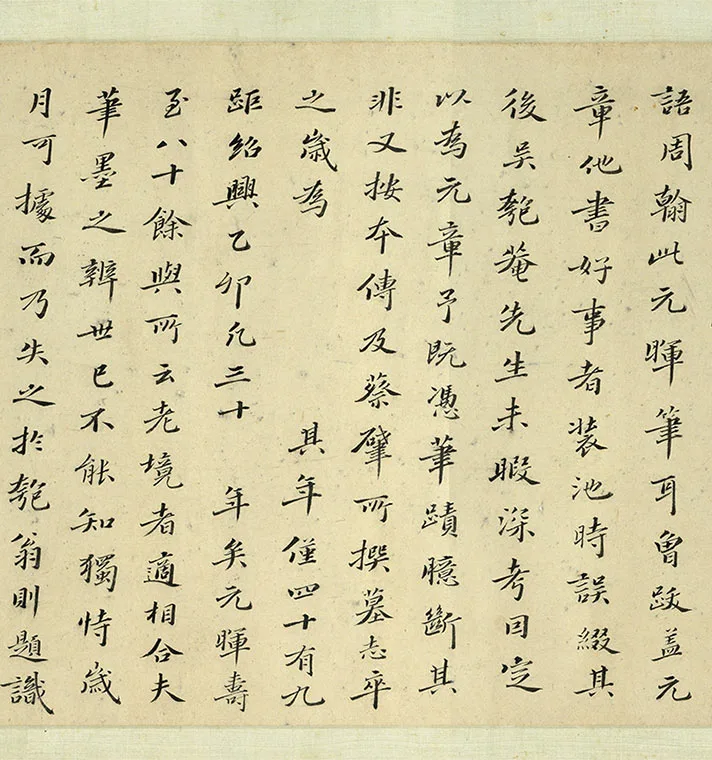 語周翰此元暉筆耳魯跋盖元
章他書好事者装池時誤綴其
後吴匏菴先生未暇深考因定
以為元章予既憑筆蹟臆斷其
非又按本傳及蔡肇所撰墓志卒
之歲為 其年僅四十有九
距紹興乙卯凡三十 年矣元暉壽
至八十餘與所云老境者適相合夫
筆墨之辨世已不能知獨恃歲
月可據而乃失之於匏翁則題識